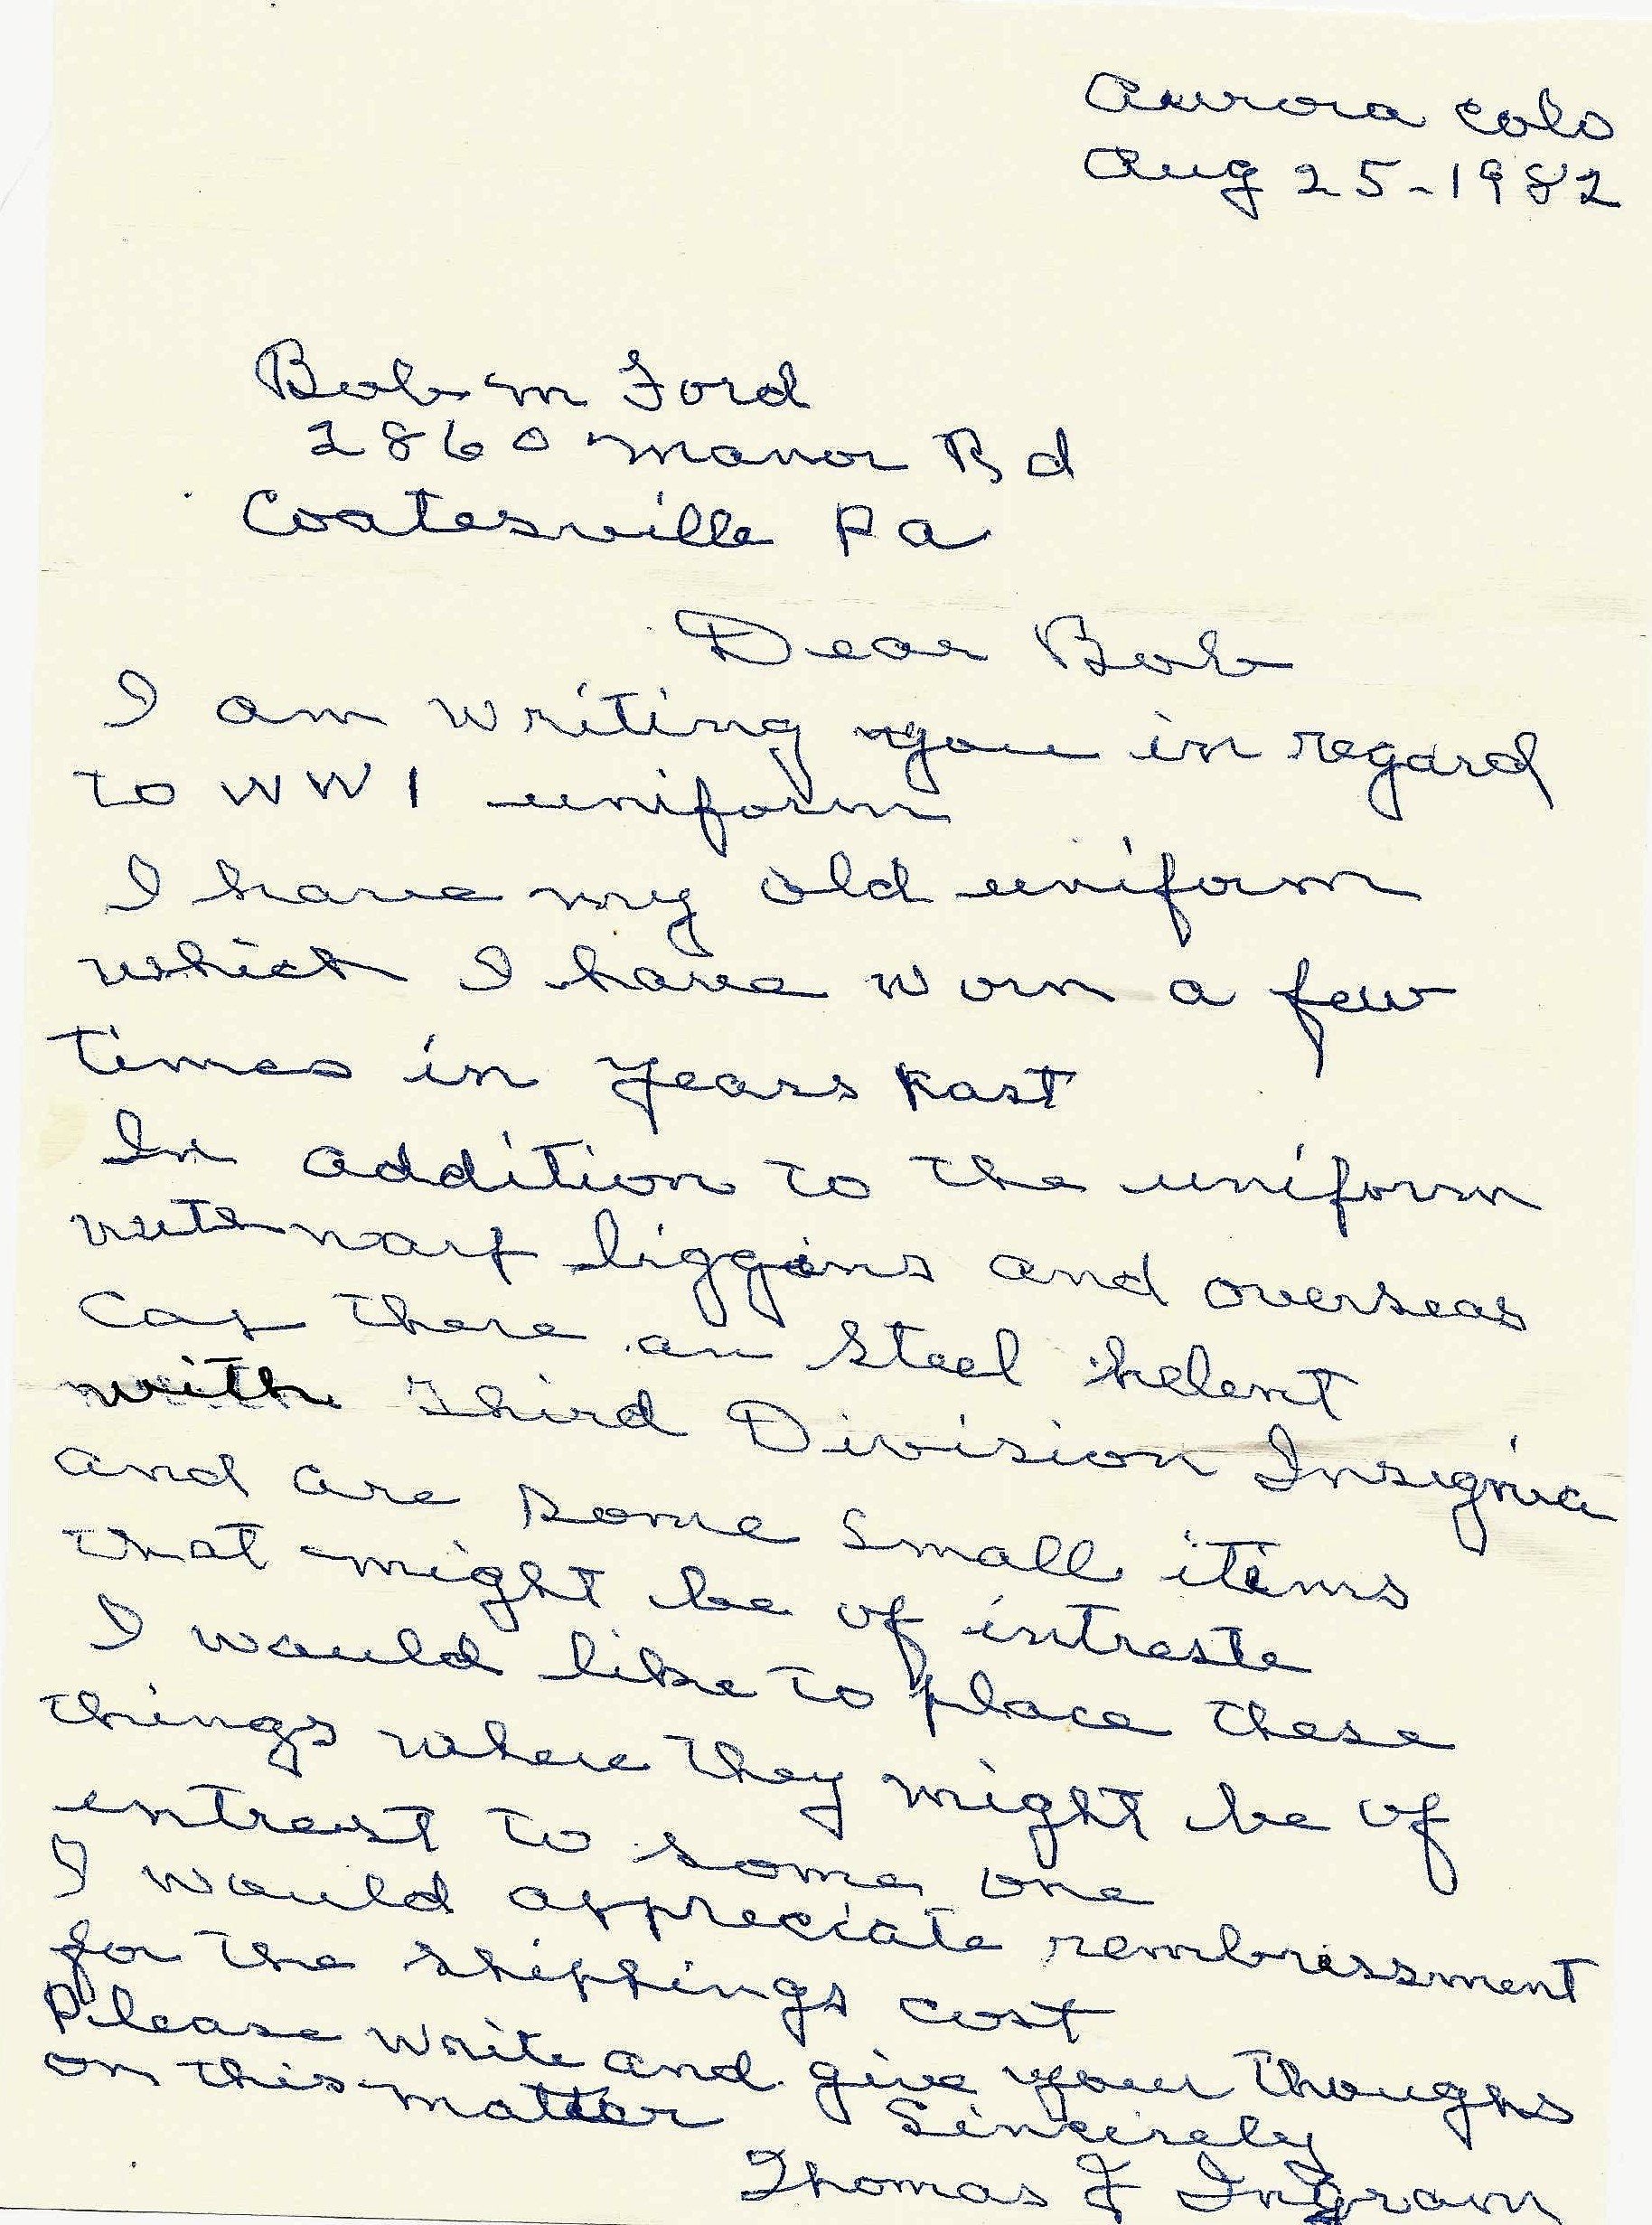 Aurora Colo
Aug 25-1982
Bob m Ford
2860 Manor Rd
Coatesville Pa
Dear Bob
I am writing you in regard
to WW1 uniform
I have my old uniform
which I have worn a few
times in years past
In addition to the uniform
liggins and overseas
cap there an steel helemt
with Third Division Insignia
and are some small items
that might be of intreste
I would like to place these
things where they might be of
intrest to some one
I would appreciate rembrissment
for the shippings cost
Please write and give your thoughs
on this matter
Sincirely
Thomas J Ingram